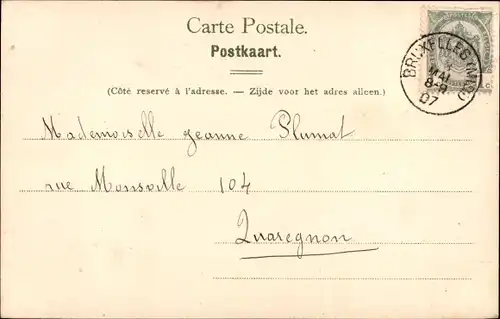 Carte Postale.
Postkaart.
(Côté reservé à l'adresse. — Zijde voor het adres alleen.)
BRUXELLES
MAI
8-9
07
Mademoiselle Jeanne Plumat
rue Monsville 104
Quaregnon